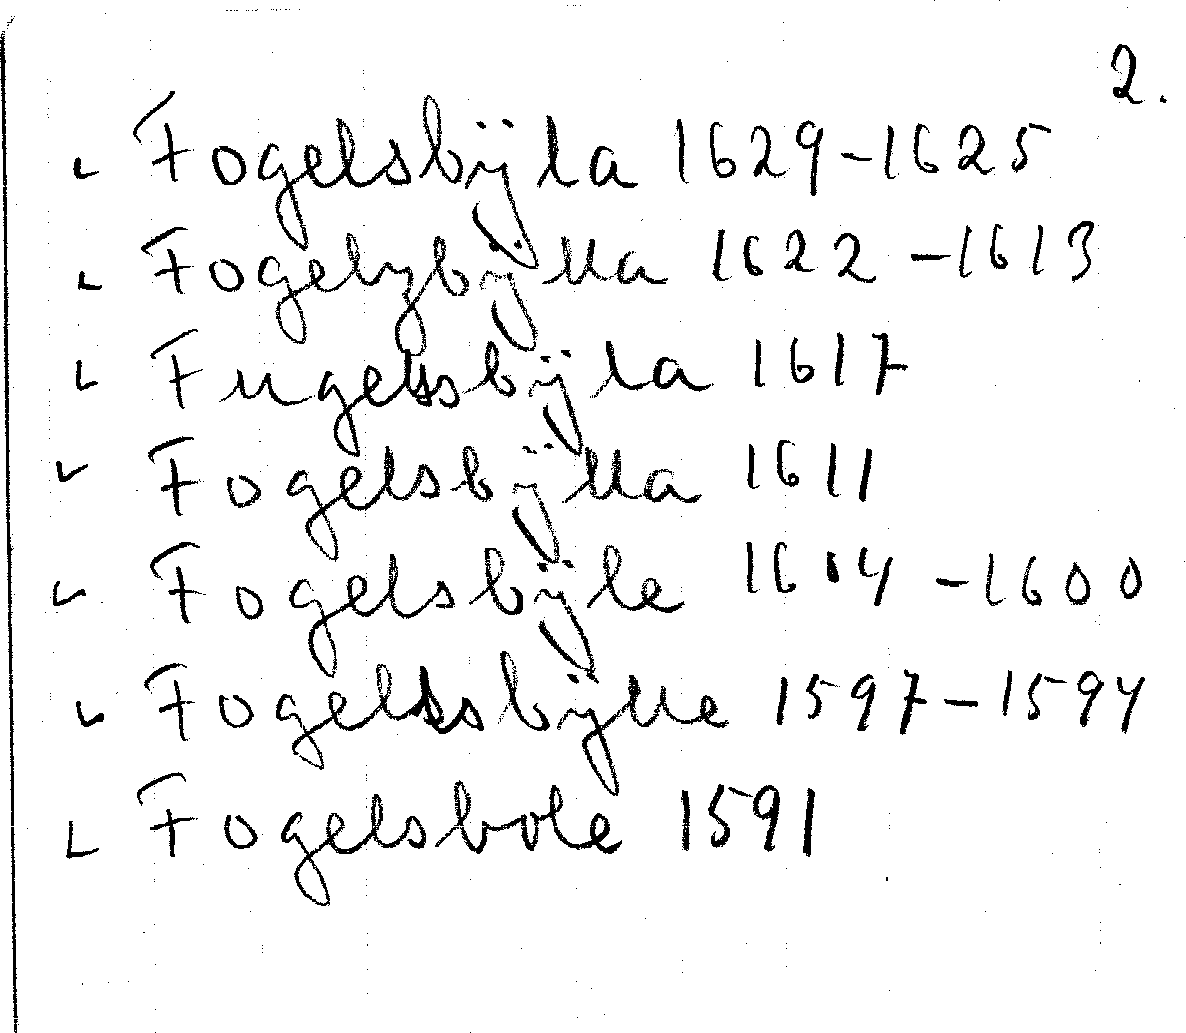 2.
Fogelsbÿla 1629-1625
Fogelzbÿlla 1622-1613
Fugelsbÿla 1617
Fogelsbÿlla 1611
Fogelsbÿle 1604-1600
Fogelssbÿlle 1597-1594
Fogelsbole 1591